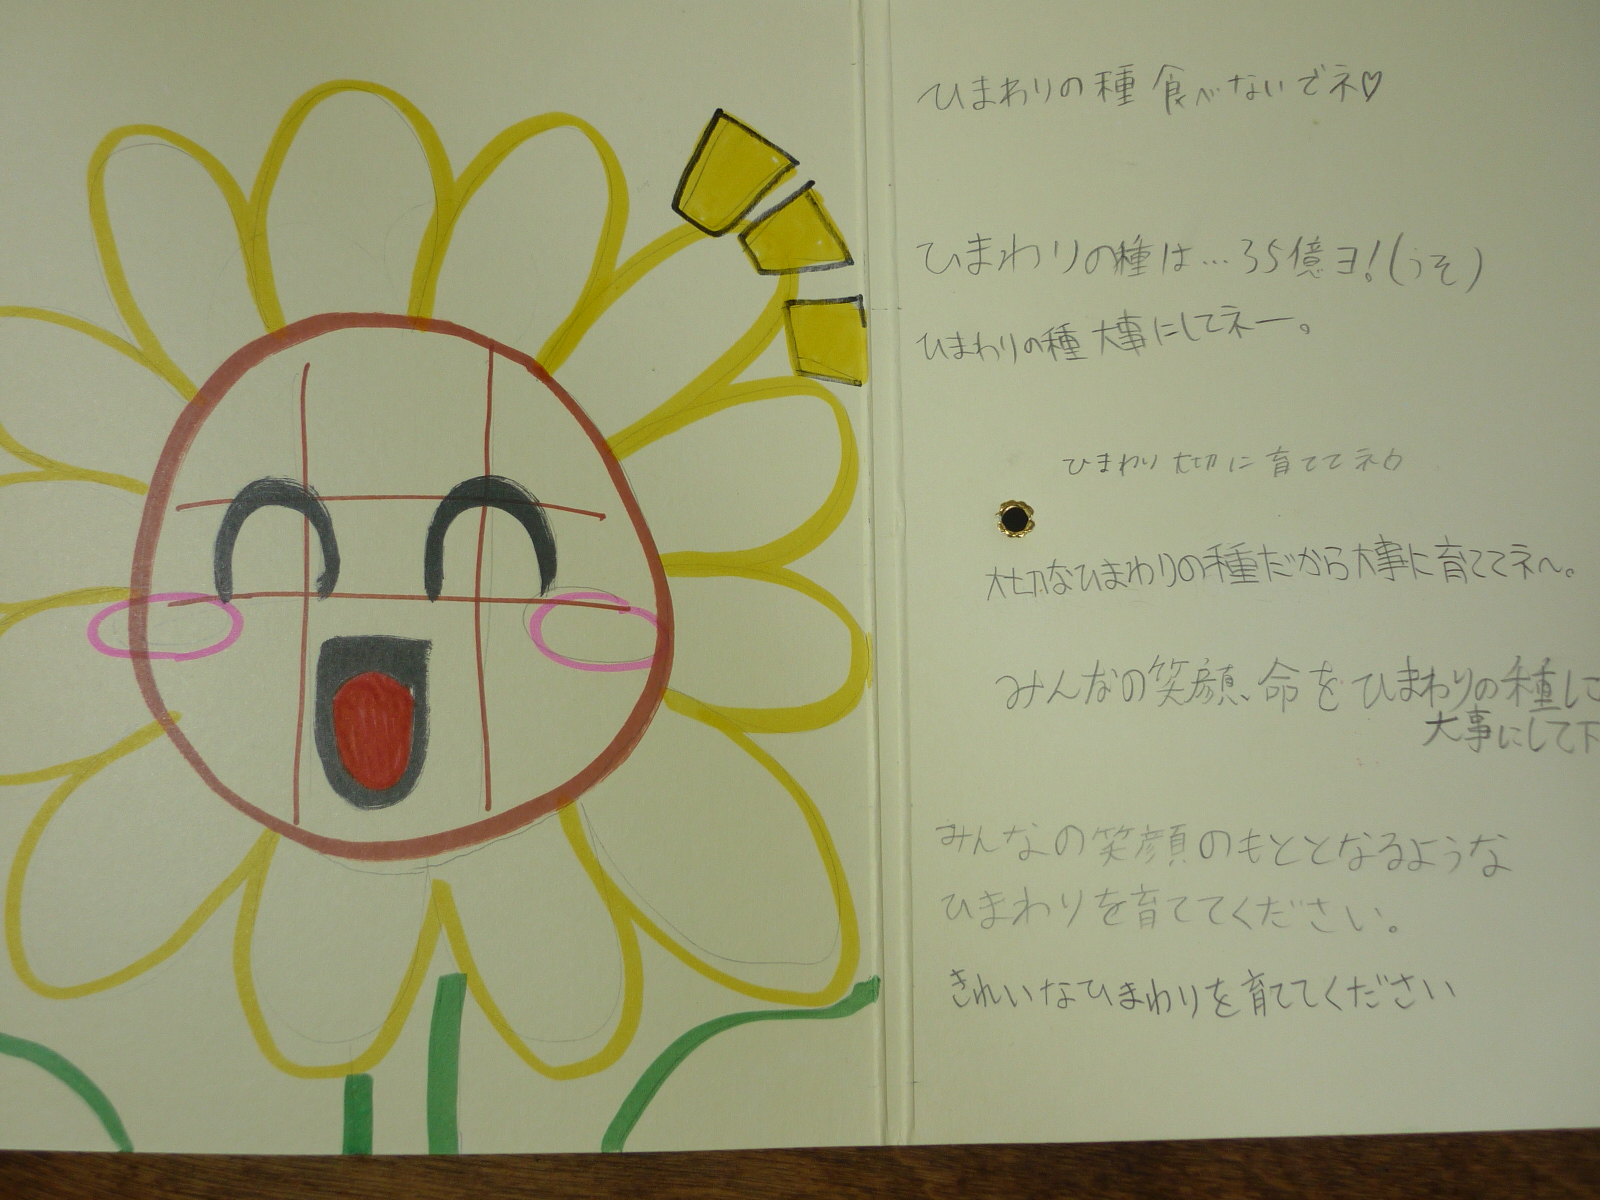 ひまわりの種 食べないでネ♡
ひまわりの種は…35億ヨ!(うそ)
ひまわりの種 大事にしてネー。
ひまわり 大切に 育ててネ♡
大切なひまわりの種だから大事に育ててネ〜。
みんなの笑顔、命をひまわりの種に
大事にして下
みんなの笑顔のもととなるような
ひまわりを育ててください。
きれいなひまわりを育ててください